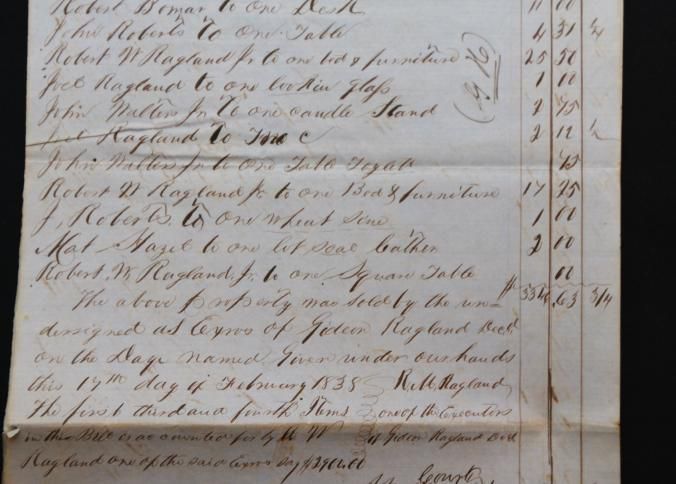 Robert Bomar to one Desk 11 00
John Roberts To one Table 4 31 1/4
Robert W Ragland Jr to one bed & furniture 25 50
Joel Ragland to one lookin glass 1 00
John Walters Jr To one candle Stand 2 75
Ragland To 2 12 1/2
John Walters Jr to one Table
Robert W Ragland Jr to one Bed & furniture 17 25
J. Roberts To one wheat 1 00
Mat to one lot 2 00
Robert W Ragland Jr. to one Square Table 00
The above property was sold by the un- $ .63 3/4
dersigned as Exros of Gideon Ragland Decd
on the Daye named Given under our hands
this 17th day of February 1838 Ragland
The first third and fourth Items one of the Executors
in this Bill is accounted for by of Gideon Ragland Decd
Ragland one of the said Exros say $2902.00
Court